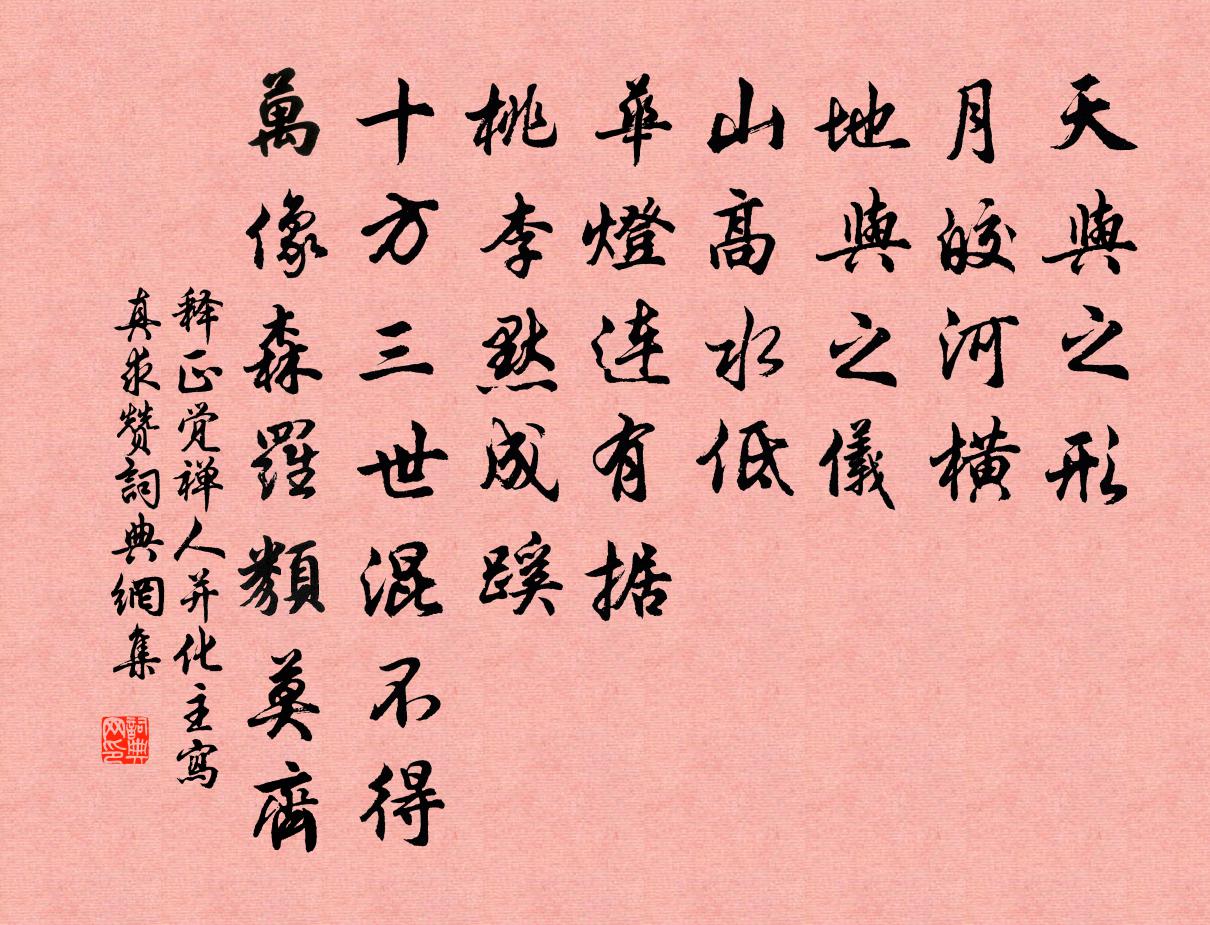 天與之形
月皎河橫
地與之儀
山高水低
華燈連有据
桃李默成蹊
十方三世混不得
萬像森羅類莫齊
释正觉禅人并化主寫
真求赞詞典網集
詞典
网印